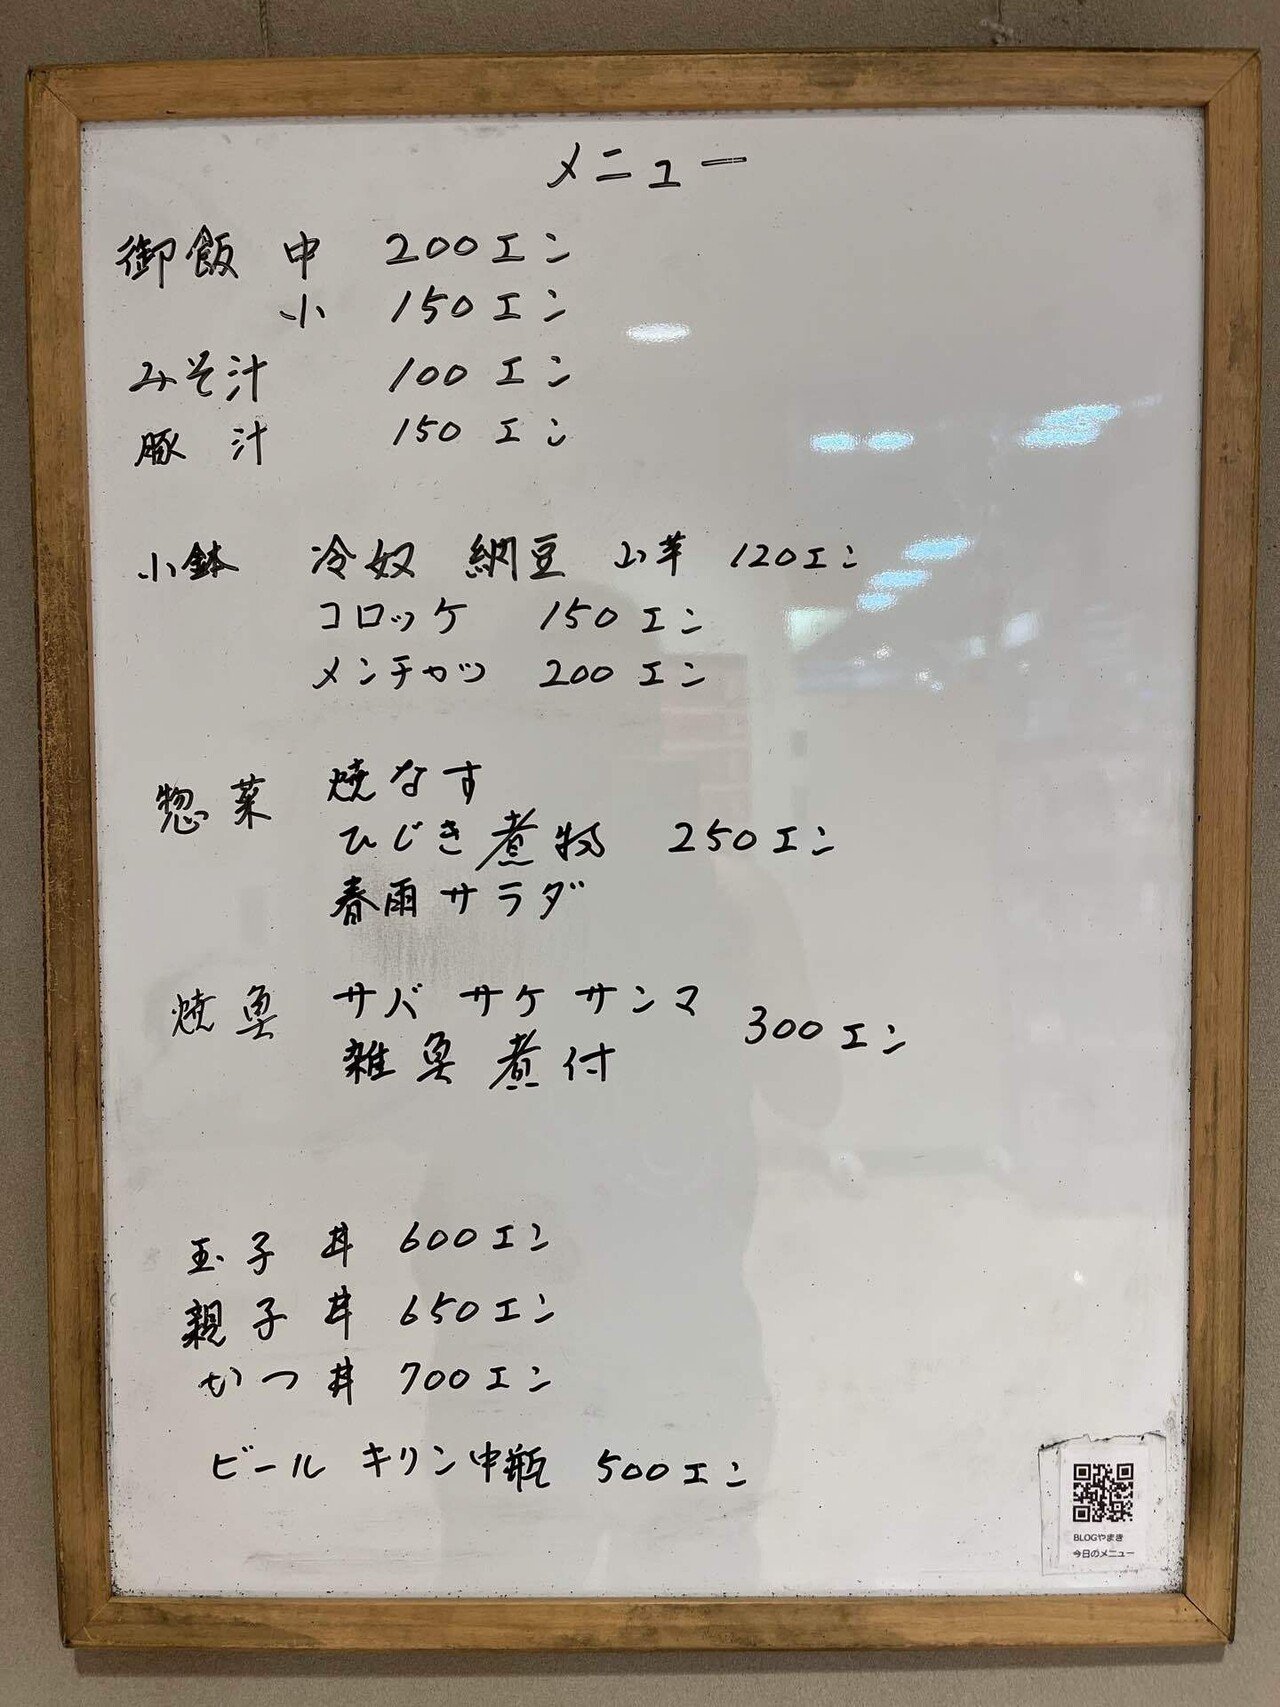 メニュー
御飯 中 200エン
小 150エン
みそ汁 100エン
豚汁 150エン
小鉢 冷奴 納豆 山芋 120エン
コロッケ 150エン
メンチカツ 200エン
惣菜 焼なす
ひじき煮物 250エン
春雨サラダ
焼魚 サバ サケ サンマ 300エン
雑魚煮付
玉子丼 600エン
親子丼 650エン
かつ丼 700エン
ビール キリン中瓶 500エン
BLOGやまき
今日のメニュー